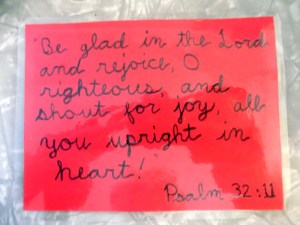 "Be glad in the Lord
and rejoice, O
righteous, and
shout for joy, all
you upright in
heart!"
Psalm 32:11